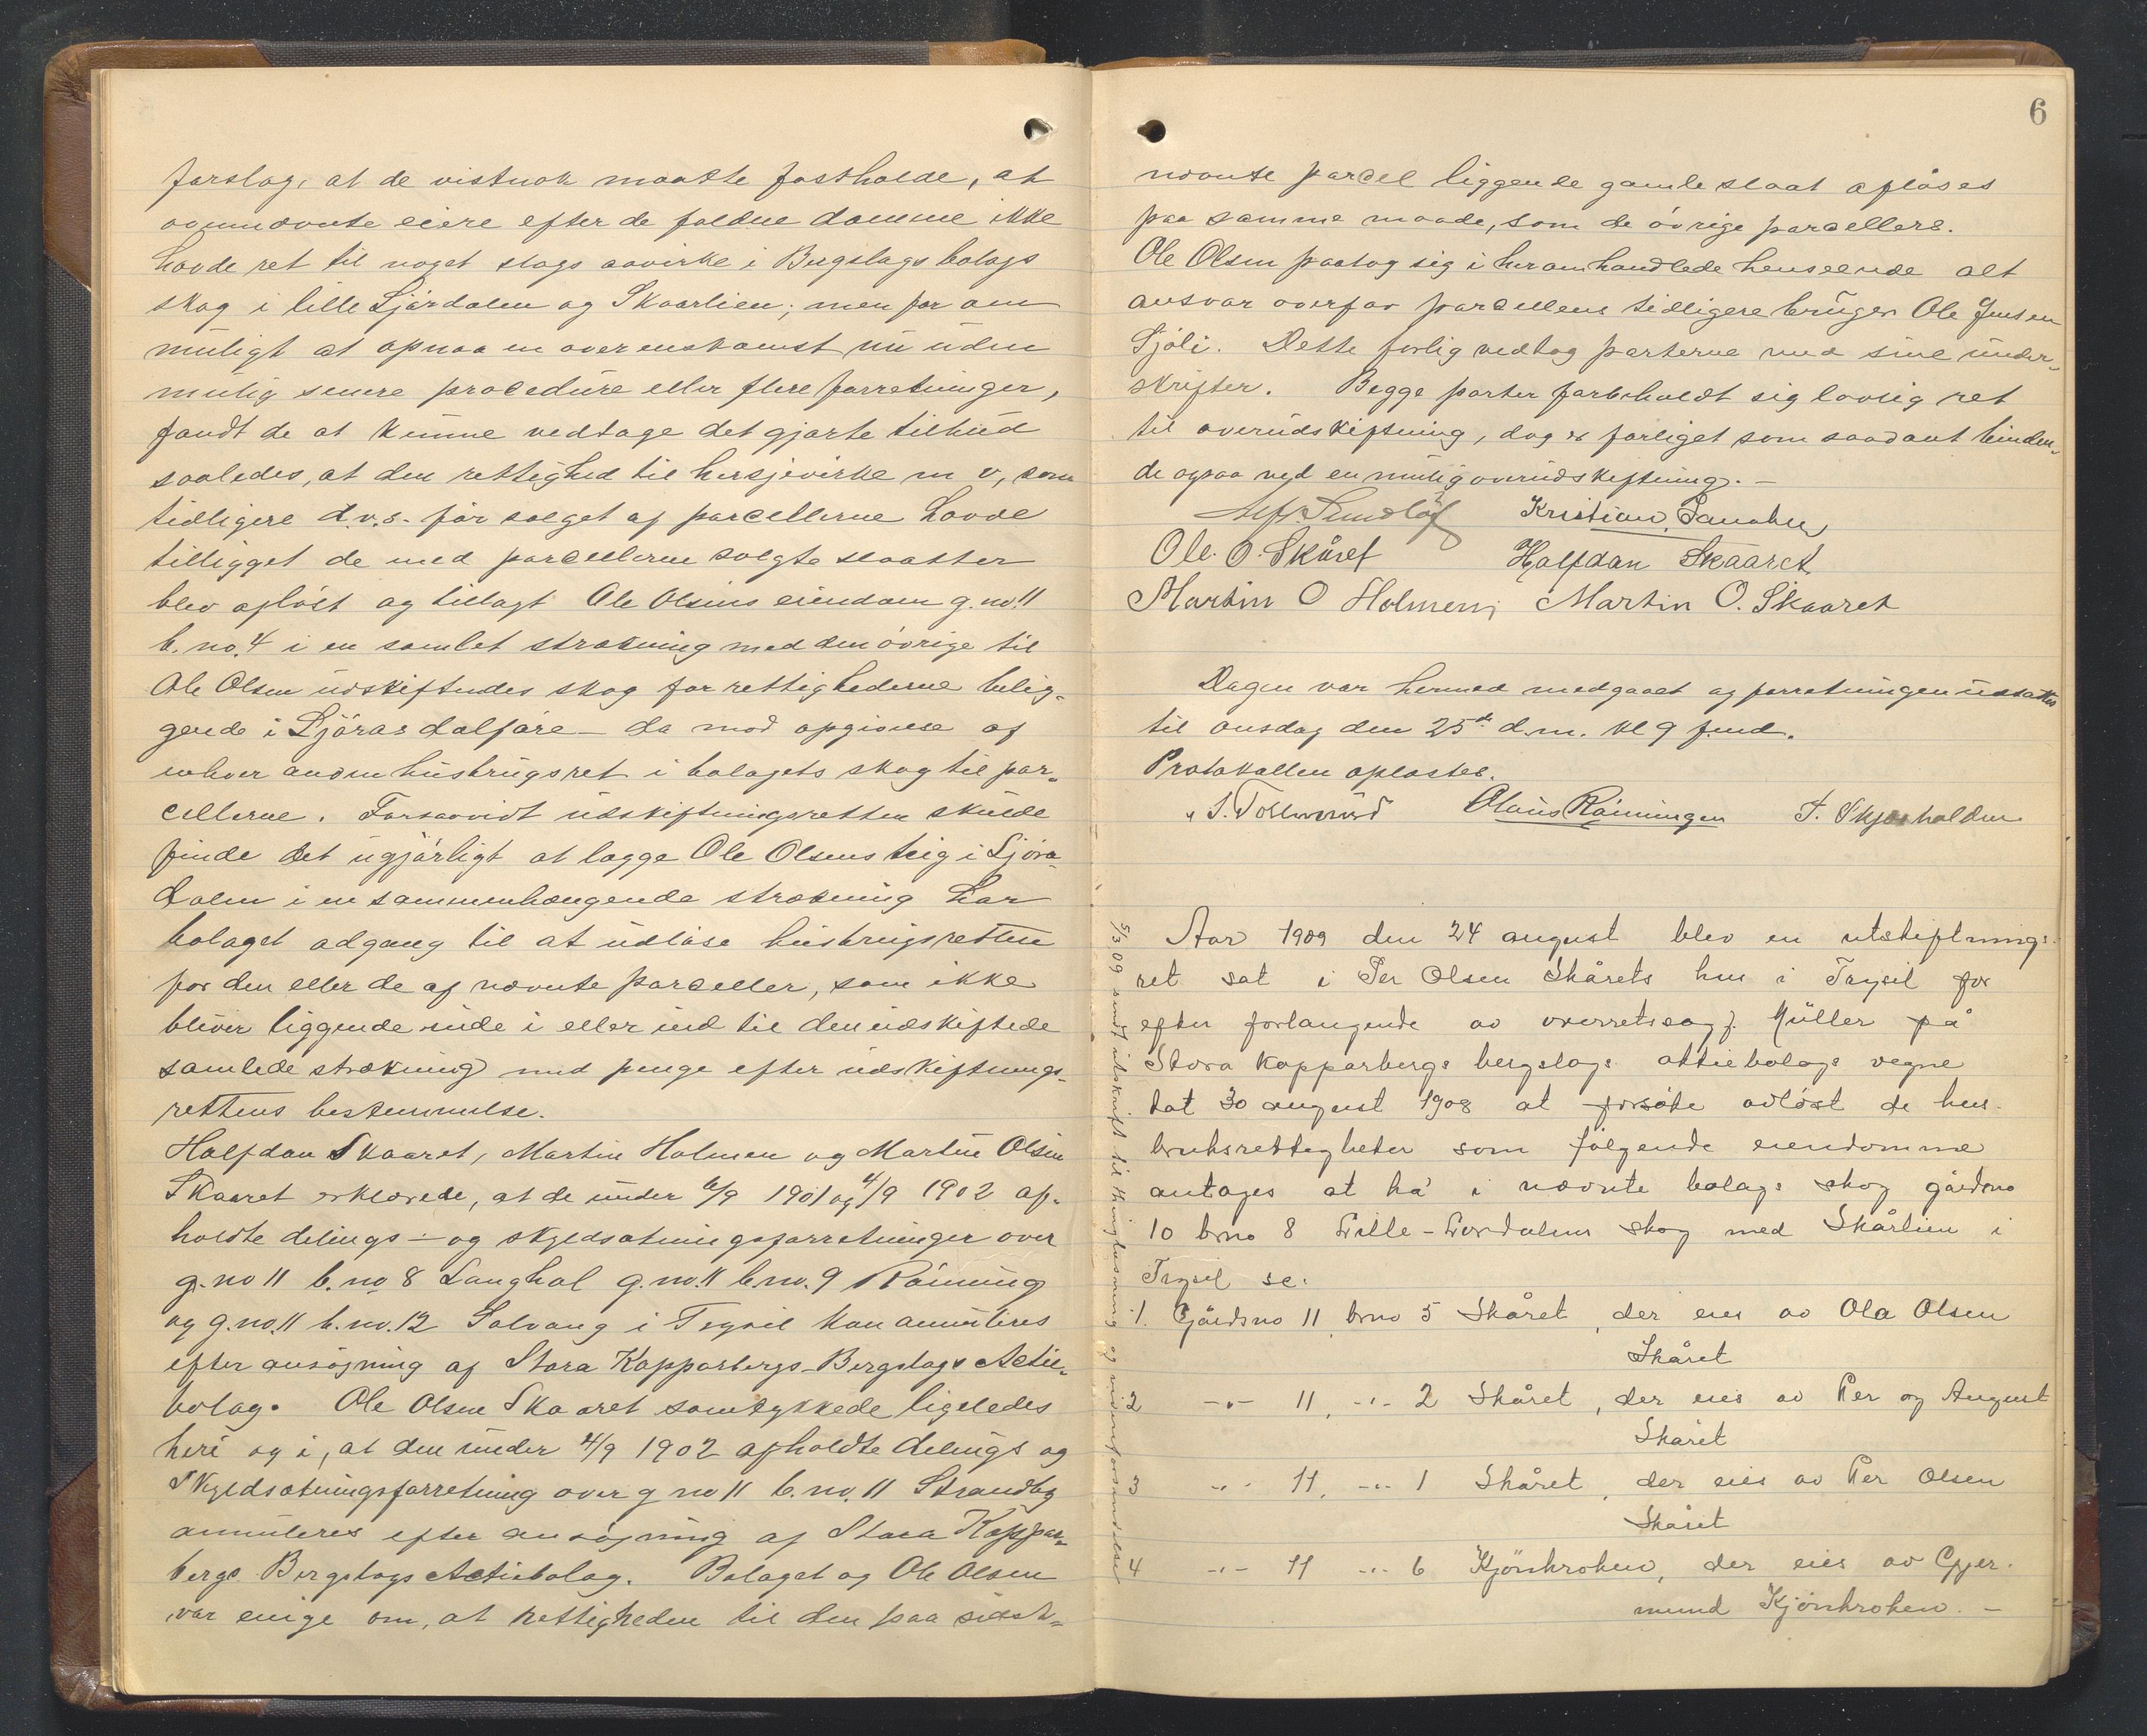 forslag, at de vistnok maatte fastholde, at
ovennævnte eiere efter de faldne domme ikke
havde ret til noget slags aavirke i Bergslags bolags
skog i lille Ljördalen og Skaarlien; men for om
muligt at opnaa en overenskomst nu uden
mulig senere procedure eller flere forretninger,
fandt de at kunne vedtage det gjorte tilbud
saaledes, at den rettighed til hersjevirke m v, som
tidligere d.v.s. før salget af parcellerne havde
tilligget de med parcellerne solgte slaatter
blev afløst og tillagt Ole Olsens eiendom g.no. 11
b. no. 4 i en samlet strækning med den øvrige til
Ole Olsen udskiftendes skog for rettighederne belig-
gende i Ljøras dalføre – da mod opgivelse af
enhver anden husbrugsret i bolagets skog til par-
cellerne. Forsaavidt udskiftningsretten skulde
finde det ugjørligt at lægge Ole Olsens teig i Ljøra-
dalen i en sammenhængende strækning har
bolaget adgang til at udløse husbrugsretten
for den eller de af nævnte parceller, som ikke
bliver liggende inde i eller ind til den udskiftede
samlede strækning med penge efter udskiftnings-
rettens bestemmelse.
Halfdan Skaaret, Martin Holmen og Martin Olsen
Skaaret erklærede, at de under 6/9 1901 og 4/9 1902 af-
holdte delings- og skyldsætningsforretninger over
g. no 11 b. no 8 Langhol g. no. 11 b. no. 9 Rönning
og g. no. 11 b. no. 12 Solvang i Trysil kan annulleres
efter ansøgning af Stora Kopparbergs-Bergslags Actie-
bolag. Ole Olsen Skaaret samtykkede ligeledes
heri og i, at den under 4/9 1902 afholdte delings og
Skyldsætningsforretning over g no 11 b. no. 11 Strandby
annulleres efter ansøgning af Stora Koppar-
bergs Bergslags Actiebolag. Bolaget og Ole Olsen
var enige om, at rettigheden til den paa sidst-
6
nævnte parcel liggende gamle slaat afløses
paa samme maade, som de øvrige parcellers.
Ole Olsen paatog sig i heromhandlede henseende alt
ansvar overfor parcellens tidligere bruger Ole Jensen
Sjöli. Dette forlig vedtog parterne med sine under-
skrifter. Begge parter forbeholdt sig lovlig ret
til overudskiftning, dog er forliget som saadant binden-
de ogsaa ved en mulig overudskiftning. –
Kristian
Ole. O. Skåret Halfdan Skaaret
Martin O Holmen, Martin O. Skaaret
Dagen var hermed medgaaet og forretningen udsattes
til onsdag den 25de d.m. kl 9 fmd.
Protokollen oplæstes.
Olaus Rönningen T. Skjærholden
Aar 1909 den 24 august blev en utskiftnings-
ret sat i Per Olsen Skårets hus i Trysil for
efter forlangende av overretssagf. Müller på
Stora Kopparbergs bergslags aktiebolags vegne
dat 30 august 1908 at forsøke avløst de hus-
bruksrettigheter som følgende eiendomme
antages at ha i nævnte bolags skog gårdsno
10 brno 8 Lille-Lørdalens skog med Skårlien i
Trysil se:
1. Gårdsno 11, brno 5 Skåret, der eies av Ola Olsen
Skåret
2 -"- 11, -"- 2 Skåret, der eies av Per og August
Skåret
3 -"- 11, -"- 1 Skåret, der eies av Per Olsen
Skåret
4 -"- 11 -"- 6 Kjönkroken, der eies av Gjer-
mund Kjönkroken. –
5/3 09 sendt utskrift til thinglæsning og